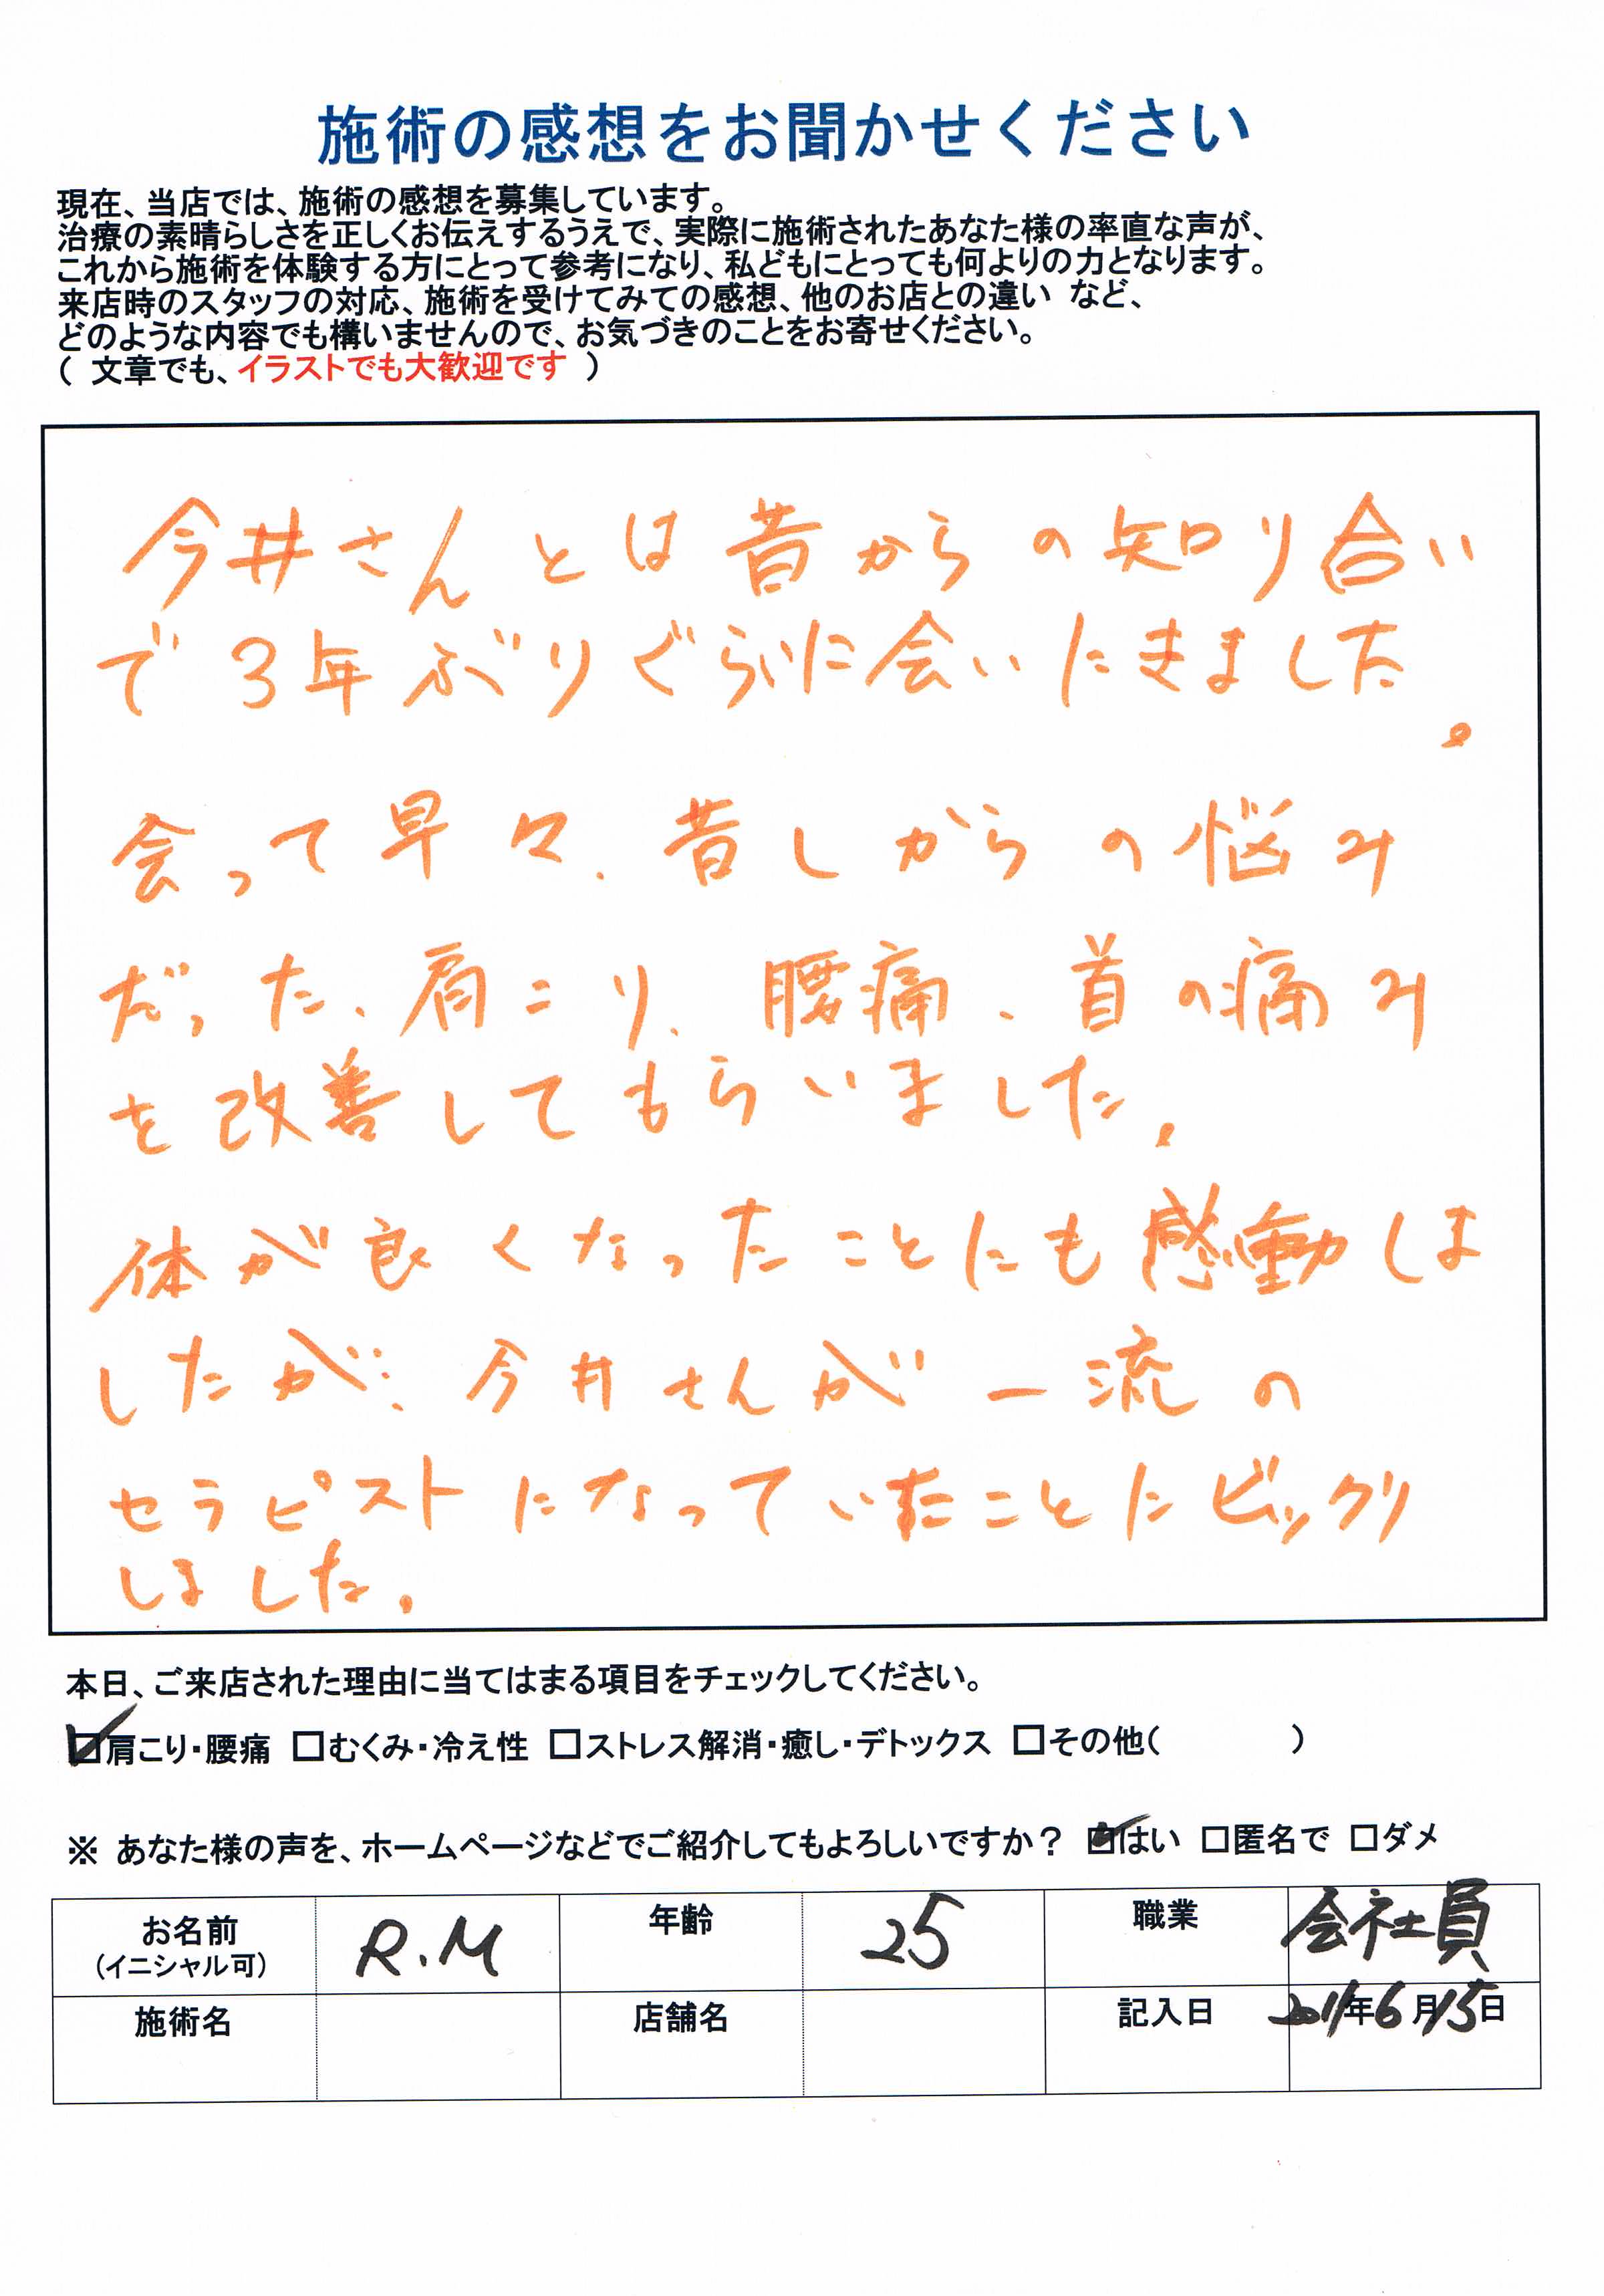 施術の感想をお聞かせください
現在、当店では、施術の感想を募集しています。
治療の素晴らしさを正しくお伝えするうえで、実際に施術されたあなた様の率直な声が、
これから施術を体験する方にとって参考になり、私どもにとっても何よりの力となります。
来店時のスタッフの対応、施術を受けてみての感想、他のお店との違い など、
どのような内容でも構いませんので、お気づきのことをお寄せください。
( 文章でも、イラストでも大歓迎です )
今井さんとは昔からの知り合い
で3年ぶりぐらいに会いにきました。
会って早々、昔しからの悩み
だった、肩こり、腰痛、首の痛み
を改善してもらいました。
体が良くなったことにも感動しま
したが、今井さんが一流の
セラピストになっていたことにビックリ
しました。
本日、ご来店された理由に当てはまる項目をチェックしてください。
☑肩こり・腰痛 □むくみ・冷え性 □ストレス解消・癒し・デトックス □その他( )
※ あなた様の声を、ホームページなどでご紹介してもよろしいですか? ☑はい □匿名で □ダメ
お名前 (イニシャル可) R.M 年齢 25 職業 会社員
施術名 店舗名 記入日 2011年6月15日